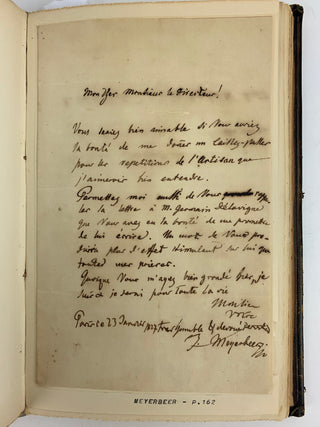 Mon cher Monsieur le Directeur!
Vous seriez bien aimable si Vous auriez
la bonté de me donner un laissez-passer
pour les repetitions de l'Artisan que
j'aimerois bien entendre.
Permettez moi aussi de Vous rappe
ler la lettre à M. Germain Delavigne
que Vous avez eu la bonté de me promettre
de lui écrire. Un mot de Vous pro
duira plus d'effet stimulant sur lui que
toutes mes prieres.
Quoique Vous m'ayez bien grondé hier, je
suis et je serai pour toute la vie
Votre
Paris ce 23 Janvier très humble & devoué
J. Meyerbeer
MEYERBEER - P.162